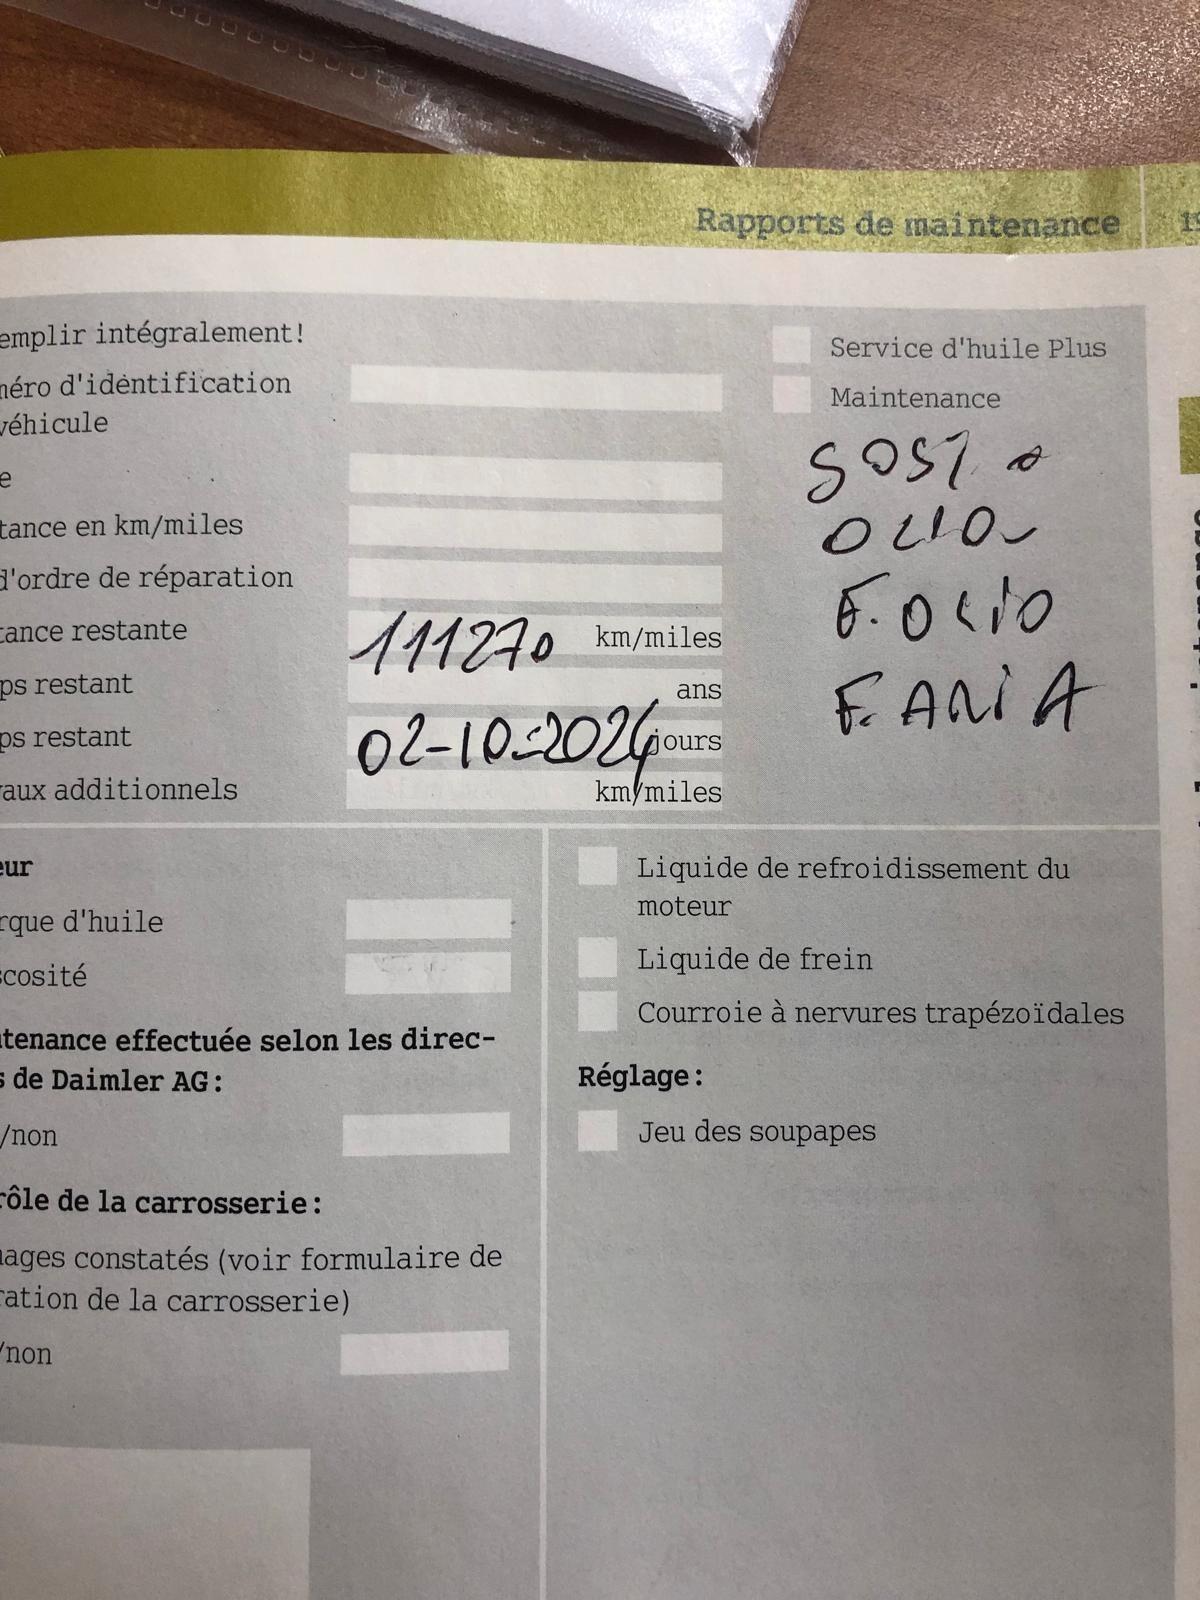 Rapports de maintenance
emplir intégralement!
méro d'identification
véhicule
e
tance en km/miles
d'ordre de réparation
tance restante 111270 km/miles
ps restant ans
ps restant 02-10-2024 jours
vaux additionnels km/miles
Service d'huile Plus
Maintenance
SOST.
OLIO
F. OLIO
F. ARIA
eur
rque d'huile
scosité
tenance effectuée selon les direc-
s de Daimler AG:
/non
rôle de la carrosserie:
mages constatés (voir formulaire de
ration de la carrosserie)
/non
Liquide de refroidissement du
moteur
Liquide de frein
Courroie à nervures trapézoïdales
Réglage:
Jeu des soupapes